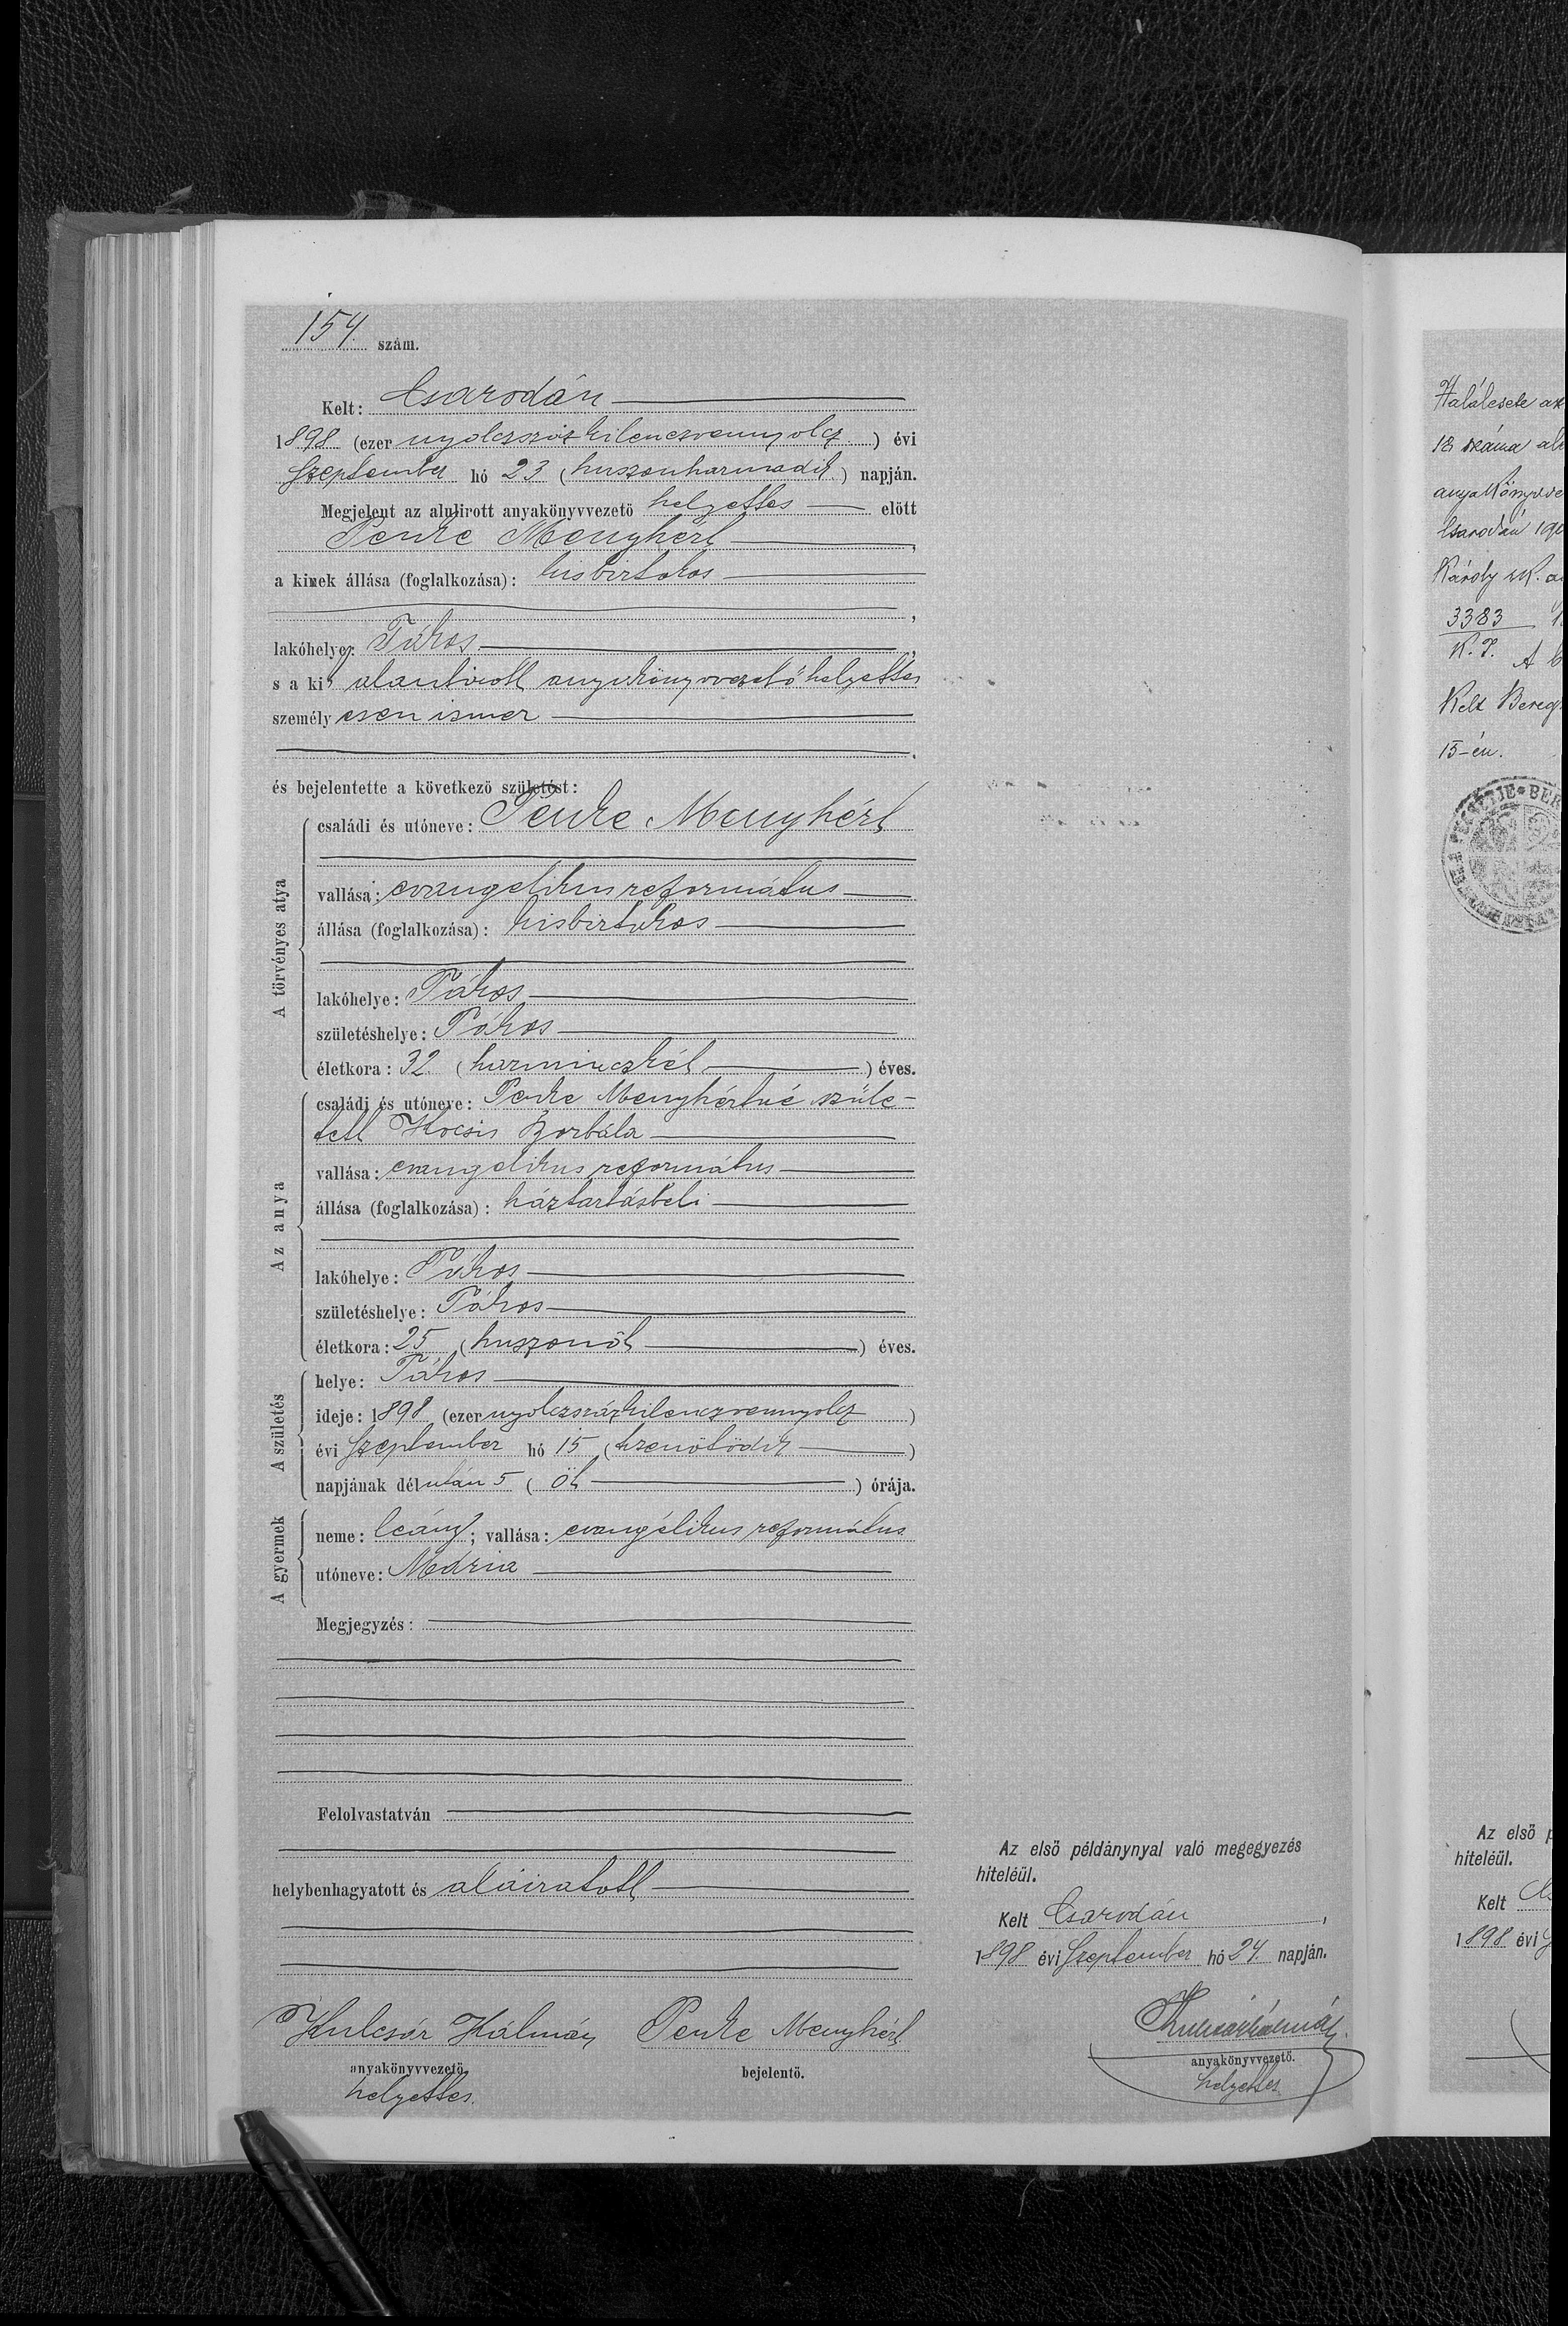 154. szám.
Kelt: Csarodán
1898 (ezer nyolczszázkilenczvennyolcz) évi
Szeptember hó 23 (huszonharmadik) napján.
Megjelent az alulirott anyakönyvvezető helyettes előtt
Penke Menyhért,
a kinek állása (foglalkozása): kisbirtokos
,
lakóhelye: Tákos,
s a kit alantirott anyakönyvvezető helyettes
személyesen ismer
.
és bejelentette a következő születést:
A törvényes atya
családi és utóneve: Penke Menyhért
vallása: evangelikus reformatus
állása (foglalkozása): kisbirtokos
lakóhelye: Tákos
születéshelye: Tákos
életkora: 32 (harminczkét) éves.
Az anya
családi és utóneve: Penke Menyhértné szüle-
tett Kocsis Borbála
vallása: evangelikus református
állása (foglalkozása): háztartásbeli
lakóhelye: Tákos
születéshelye: Tákos
életkora: 25 (huszonöt) éves.
A születés
helye: Tákos
ideje: 1898 (ezer nyolczszázkilenczvennyolcz)
évi Szeptember hó 15 (tizenötödik)
napjának délután 5 (öt) órája.
A gyermek
neme: leány; vallása: evangélikus református
utóneve: Mária
Megjegyzés:
Felolvastatván
helybenhagyatott és aláiratott
Kulcsár Kálmán Penke Menyhért
anyakönyvvezető. bejelentő.
helyettes.
Az első példánynyal való megegyezés
hiteléül.
Kelt Csarodán,
1898 évi Szeptember hó 24. napján.
Kulcsár Kálmán
anyakönyvvezető.
helyettes
Halálesete
18 száma
anyakönyvve
Csarodán 19
Károly sk.
3383
K.I. A
Kelt Bereg
15-én.
Az első
hiteléül.
Kelt
1898 évi